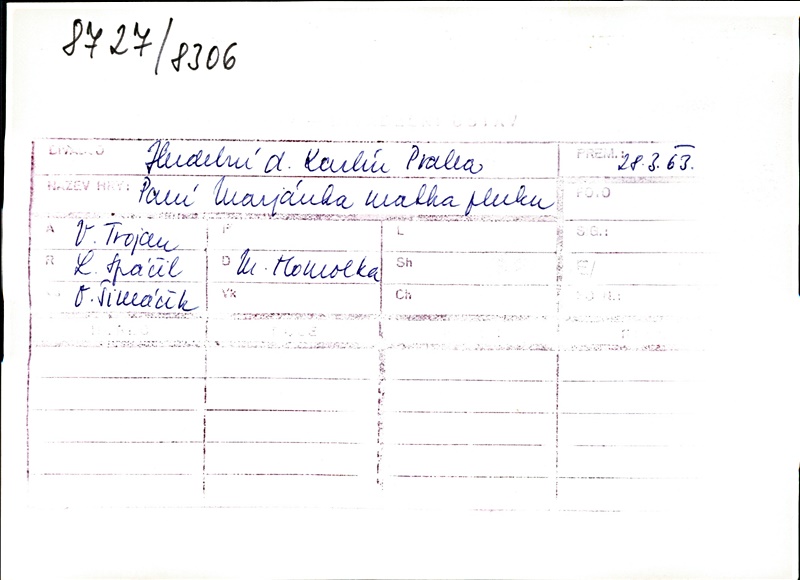 8727/8306
DIVADLO Hudební d. Karlín Praha PREM.: 28.3.63.
NÁZEV HRY: Paní Marjánka matka pluku FOTO
A V. Trojan P L SG.:
R L. Spáčil D M. Homolka Sh
O. Šimáčik Vk Ch